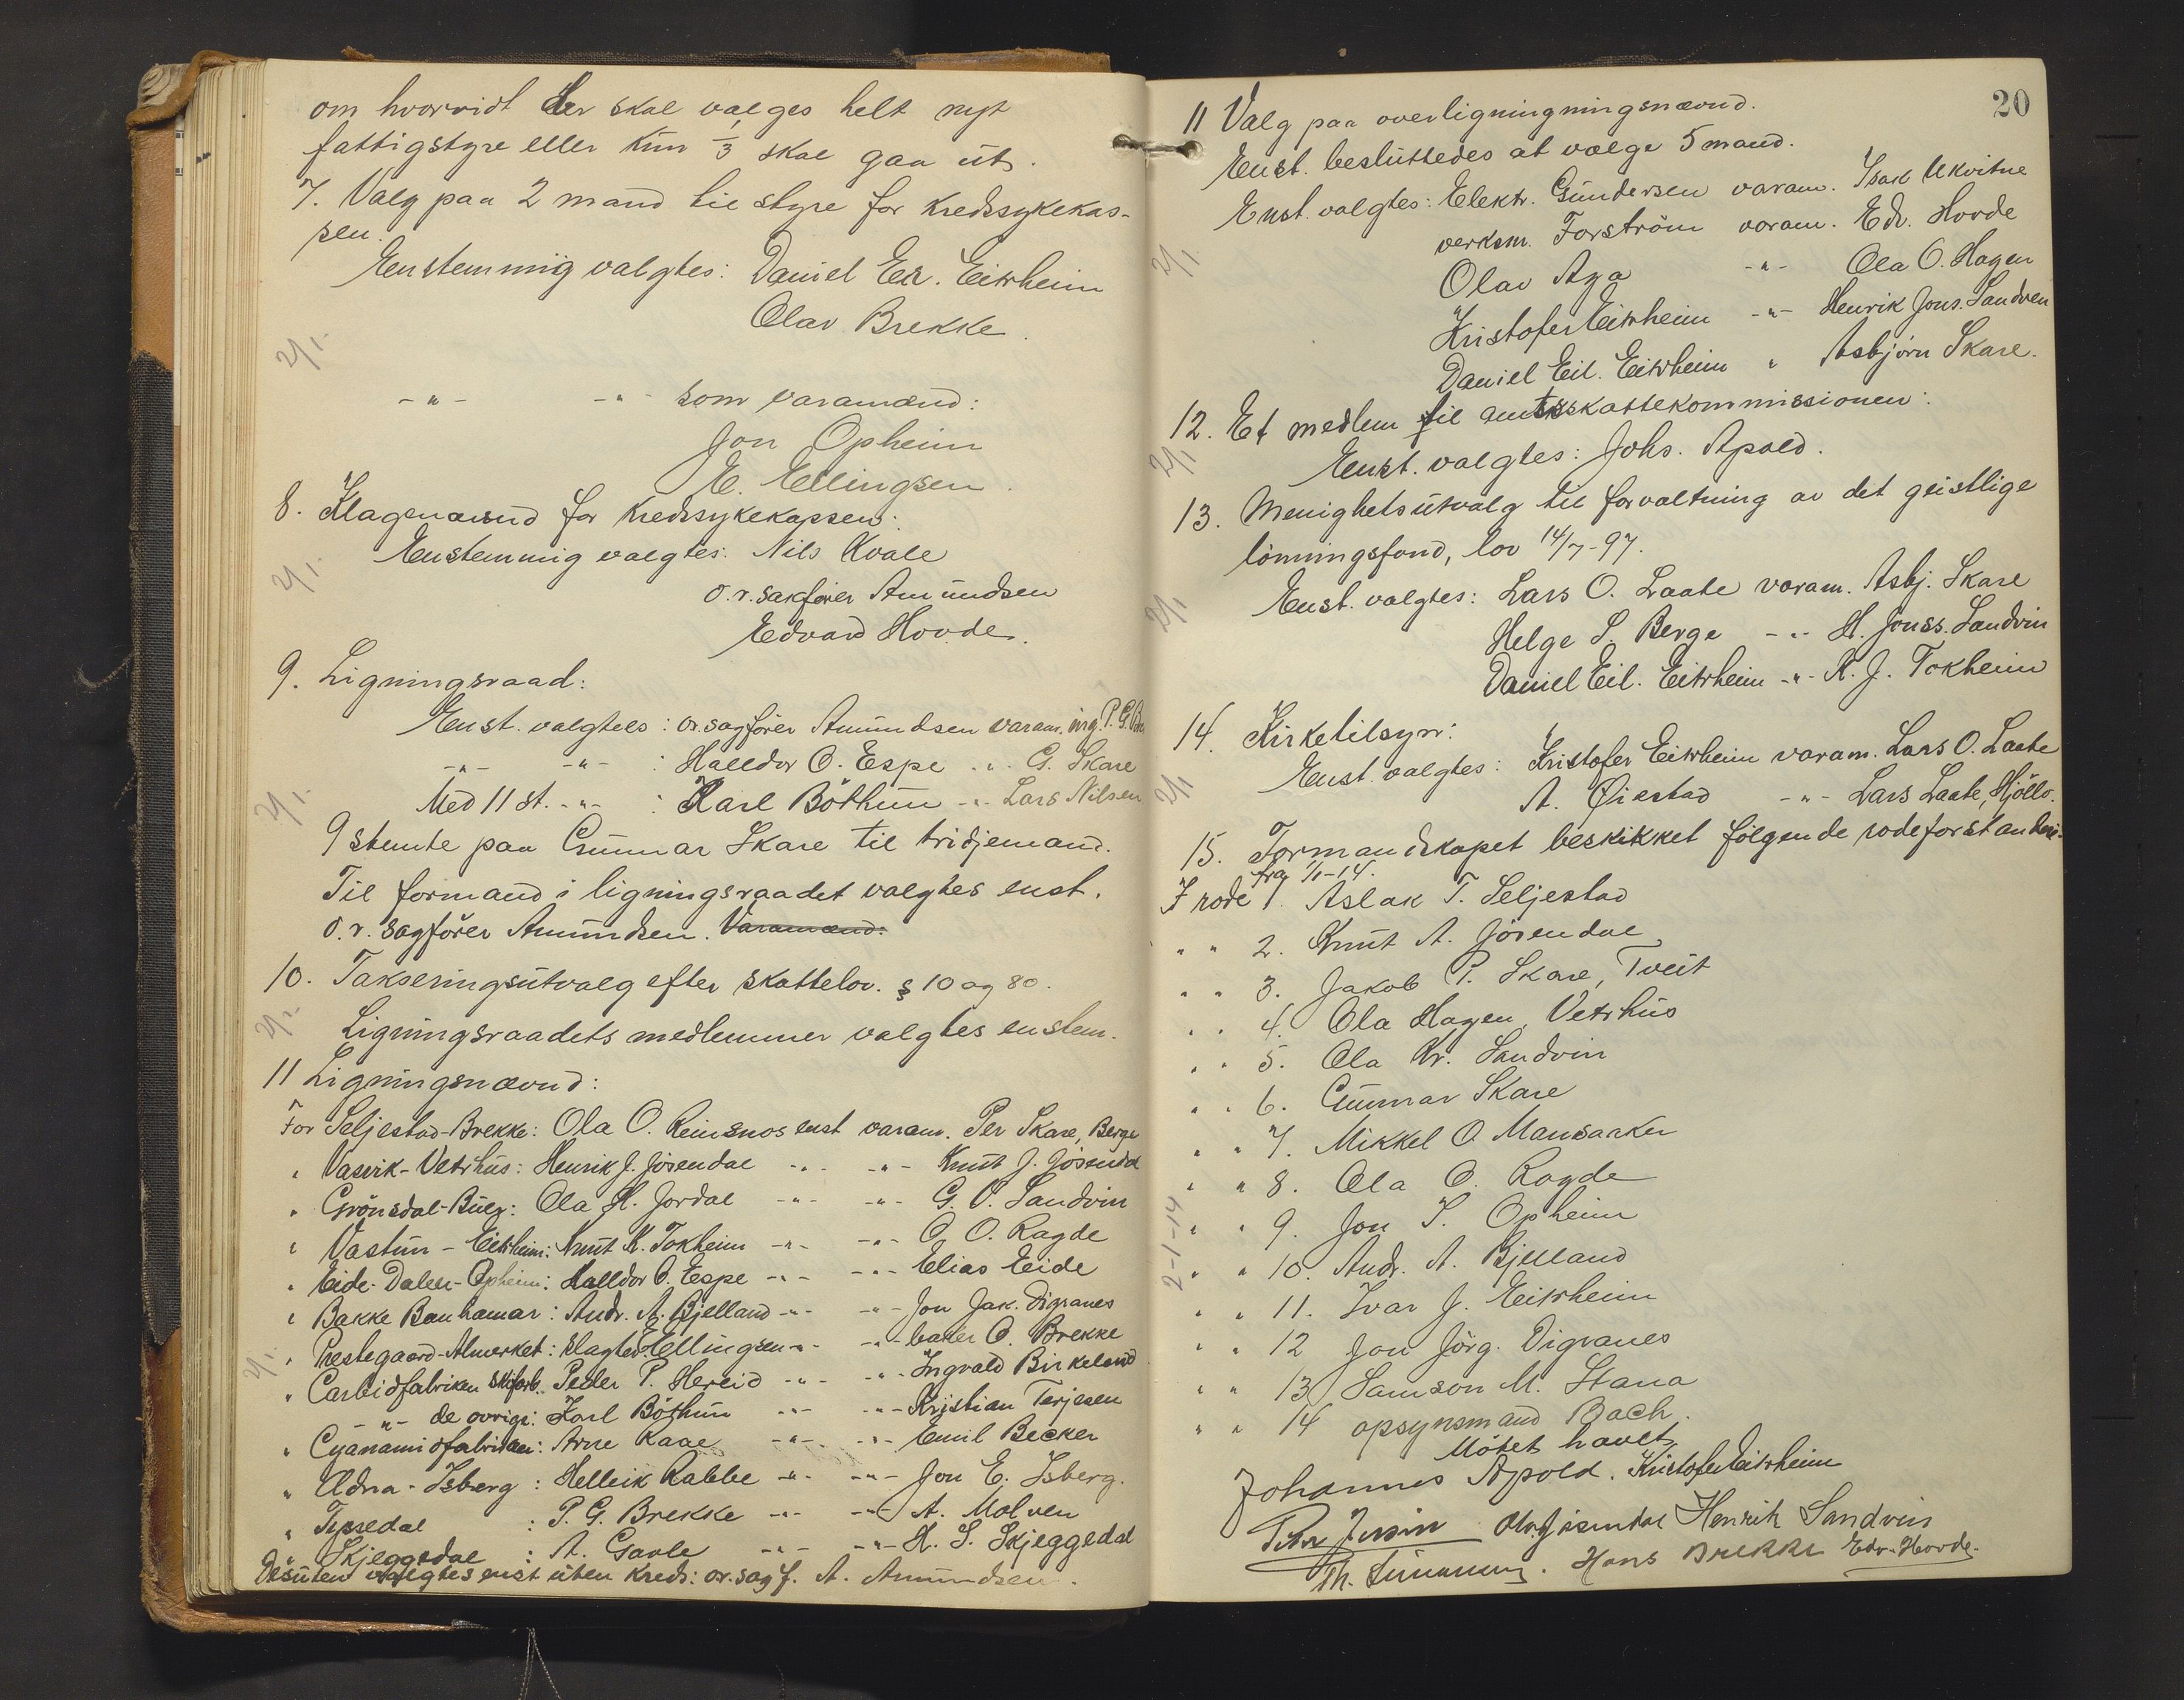 om hvorvidt der skal vælges helt nyt
fattigstyre eller kun 1/3 skal gaa ut.
7. Valg paa 2 mand til styre for kredssykekas-
sen.
Enstemmig valgtes: Daniel Er. Eitrheim
Olav Brekke.
2/1.
-"- -"- som varamænd:
Jon Opheim
E. Ellingsen.
8. Klagenævnd for kredssykekassen:
Enstemmig valgtes: Nils Kvale
2/1.
o.r.sakfører Amundsen
Edvard Hovde.
9. Ligningsraad:
Enst. valgtes: o.r.sagfører Amundsen varam. ing. P. G.
-"- -"- : Halldor O. Espe -"- G. Skare
Med 11 st. -"- : Karl Böthun -"- Lars Nilsen
2/1.
9 stemte paa Gunnar Skare til tridjemand.
Til formand i ligningsraadet valgtes enst.
o.r. sagfører Amundsen. Varamænd:
10. Takseringsutvalg efter skattelov. § 10 og 80.
2/1.
Ligningsraadets medlemmer valgtes enstem.
11 Ligningsnævnd:
For Seljestad-Brekke: Ola O. Reinsnos enst varam. Per Skare, Berge
" Vasvik-Vetrhus: Henrik J. Jösendal -"- -"- Knut J. Jösendal
" Grönsdal-Buer: Ola H. Jordal -"- -"- G. O. Sandvin
" Vastun-Eitrheim: Knut K. Tokheim -"- -"- O. O. Ragde
" Eide-Dalen-Opheim: Halldor O. Espe -"- -"- Elias Eide
" Bakke Banhamar: Andr. A. Bjelland -"- -"- Jon Jak. Digranes
" Prestegaard-Almerket: slagter Ellingsen -"- -"- baker O. Brekke
2/1.
" Carbidfabriken skifarb. Peder P. Hereid -"- -"- Ingvald Birkeland
-"- de øvrige: Karl Böthun -"- -"- Kristian Terjesen
" Cyanamidfabriken: Arne Kaae -"- -"- Emil Becker
" Udna-Isberg: Helleik Rabbe -"- -"- Jon E. Isberg.
" Tyssedal : P. G. Brekke -"- -"- A. Molven
" Skjeggedal : A. Gavle -"- -"- H. S. Skjeggedal
Desuten valgtes enst uten kreds: o.r.sagf. A. Amundsen.
20
11 Valg paa overligningningsnævnd.
Enst. besluttedes at vælge 5 mand.
Enst. valgtes: Elektr. Gundersen varam. Isak Ukvitne
2/1.
verksm. Forström varam. Edv. Hovde
Olav Aga -"- Ola O. Hagen
Kristofer Eitrheim -"- Henrik Jons. Sandven
Daniel Eil. Eitrheim " Asbjörn Skare.
12. Et medlem til amtsskattekommissionen:
2/1
Enst. valgtes: Johs. Apold.
13. Menighetsutvalg til forvaltning av det geistlige
lönningsfond, lov 14/7-97.
2/1
Enst. valgtes: Lars O. Laate varam. Asbj. Skare
Helge S. Berge -"- H. Jonss. Sandvin
Daniel Eil. Eitrheim -"- K. J. Tokheim
14. Kirketilsyn:
2/1
Enst. valgtes: Kristofer Eitrheim varam. Lars O. Laate
A. Øiestad -"- Lars Laate, Hjöllo.
15. Formandskapet beskikket følgende rodeforstandere.
fra 1/1-14.
I rode 1. Aslak T. Seljestad
" " 2. Knut A. Jösendal
" " 3. Jakob P. Skare, Tveit
" " 4. Ola Hagen, Vetrhus
" " 5. Ola Kr. Sandvin
" " 6. Gunnar Skare
" " 7. Mikkel O. Mansaaker
" " 8. Ola O. Ragde
2-1-14
" " 9. Jon S. Opheim
" " 10. Andr. A. Bjelland
" " 11. Ivar J. Eitrheim
" " 12 Jon Jörg. Digranes
" " 13 Samson M. Stana
" " 14 opsynsmand Bach.
Mötet hævet
Johannes Apold. Kristofer Eitrheim
Olav Jösendal Henrik Sandvin
Hans Brekke Edv. Hovde.